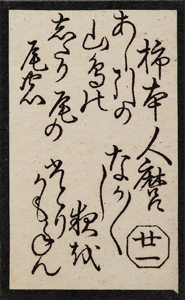 柿本人麿
廿一
あし引の
山鳥の
尾の
志だり尾の
なが〱し
夜を
ひとり
かもねん